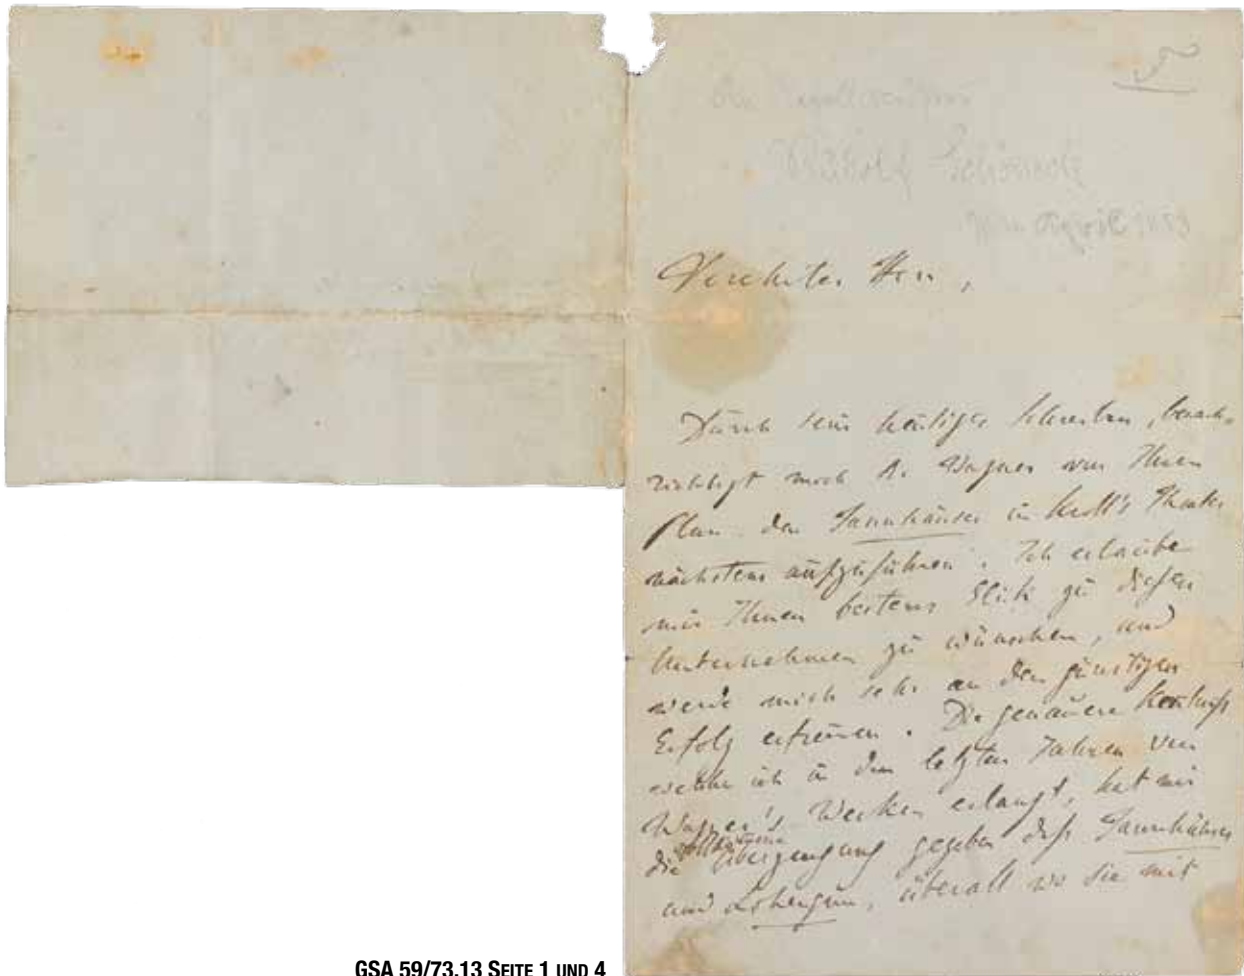 Rudolf Schöneck
April 1853
Verehrter Herr,
Durch sein heutiges Schreiben, benach-
richtigt mich R. Wagner von Ihrem
Plan den Tannhäuser in Kroll's Theater
nächstens aufzuführen. Ich erlaube
mir Ihnen bestens Glück zu diesem
Unternehmen zu wünschen, und
werde mich sehr an den günstigen
Erfolg erfreuen. Die genauere Kenntniß
welche ich in den letzten Jahren von
Wagner's Werken erlangt, hat mir
die vollkommene Überzeugung gegeben daß Tannhäuser
und Lohengrin, überall wo sie mit
GSA 59/73,13 SEITE 1 UND 4